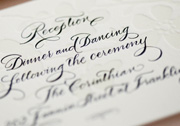 Reception
Dinner and Dancing
following the ceremony
The Corinthian
Street at Franklin